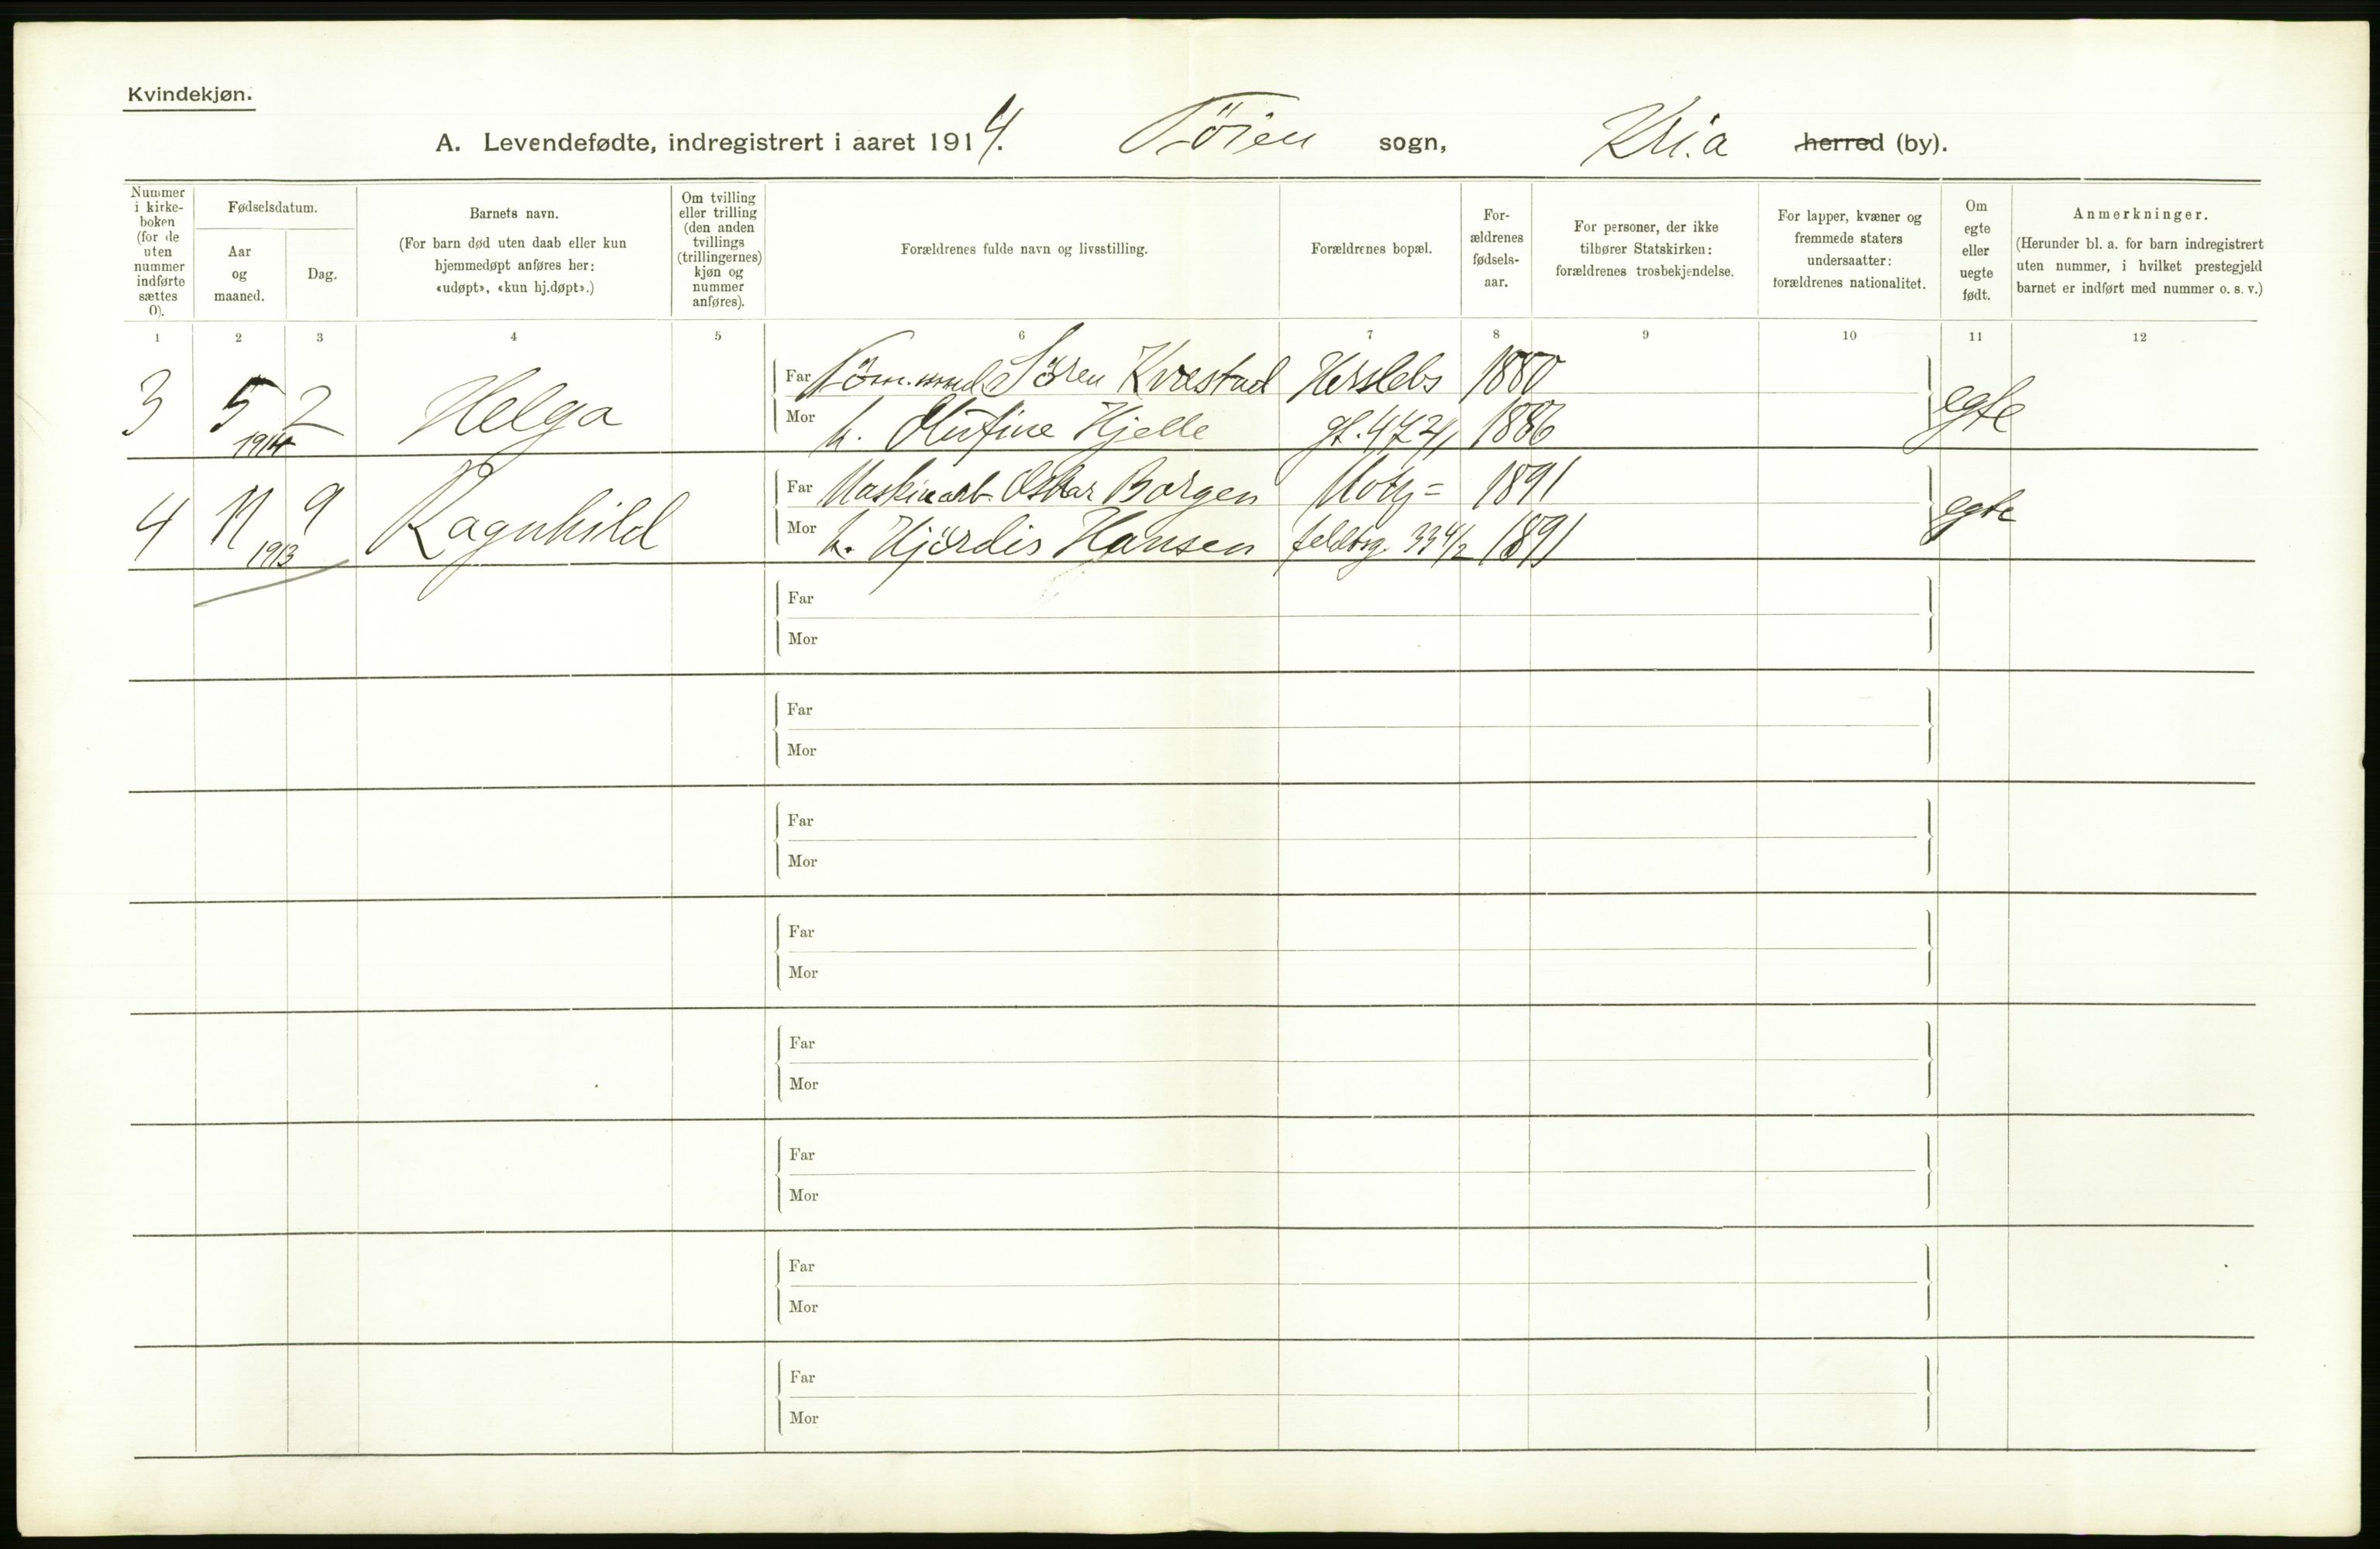 Kvindekjøn.
A. Levendefødte, indregistrert i aaret 1914. Tøien sogn, Kr.a herred (by).
Nummer i kirke-boken (for de uten nummer indførte sættes 0).
Fødselsdatum.
Aar og maaned.
Dag.
Barnets navn.
(For barn død uten daab eller kun hjemmedøpt anføres her: «udøpt», «kun hj.døpt».)
Om tvilling eller trilling (den anden tvillings (trillingernes) kjøn og nummer anføres).
Forældrenes fulde navn og livsstilling.
Forældrenes bopæl.
For-ældrenes fødsels-aar.
For personer, der ikke tilhører Statskirken: forældrenes trosbekjendelse.
For lapper, kvæner og fremmede staters undersaatter: forældrenes nationalitet.
Om egte eller uegte født.
Anmerkninger.
(Herunder bl. a. for barn indregistrert uten nummer, i hvilket prestegjeld barnet er indført med nummer o. s. v.)
1 2 3 4 5 6 7 8 9 10 11 12
Far Søren Kvæstad Herslebs 1880
3 5 2 Helga egte
1914
Mor h. Olufine Hjelle gt. 1886
Far Maskinarb. Oskar Borgen 1891
4 11 9 Ragnhild egte
1913
Mor h. Hjørdis Hansen 1891
Far
Mor
Far
Mor
Far
Mor
Far
Mor
Far
Mor
Far
Mor
Far
Mor
Far
Mor